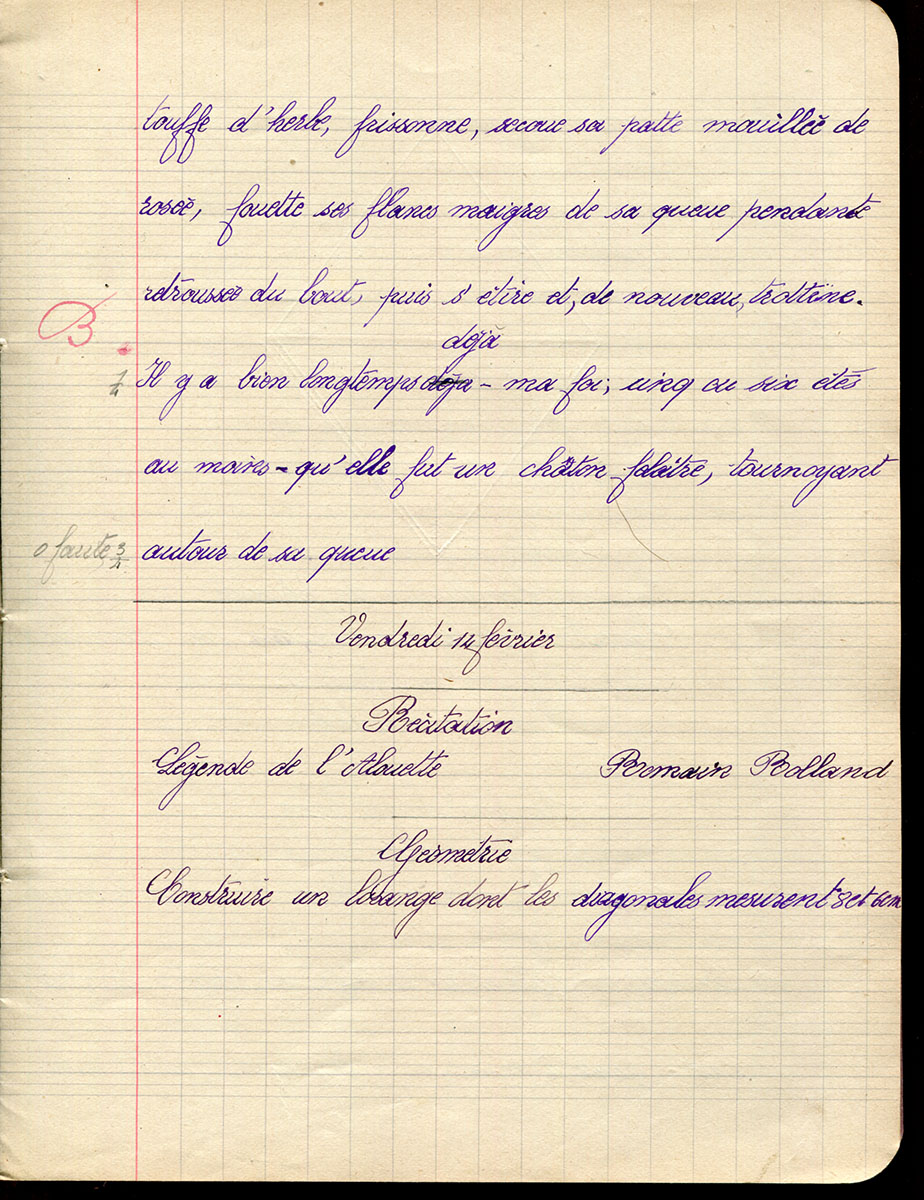 touffe d'herbe, frissonne, secoue sa patte mouillée de
rosée, fouette ses flancs maigres de sa queue pendante
retroussée du bout, puis s'étire et, de nouveau, trottine.
B
déjà
1/4 Il y a bien longtemps déjà - ma foi, cinq ou six étés
au moins - qu'elle fut un châton folâtre, tournoyant
0 faute 3/4 autour de sa queue
Vendredi 14 février
Récitation
Légende de l'Alouette Romain Rolland
Géométrie
Construire un losange dont les diagonales mesurent 8 et 6cm